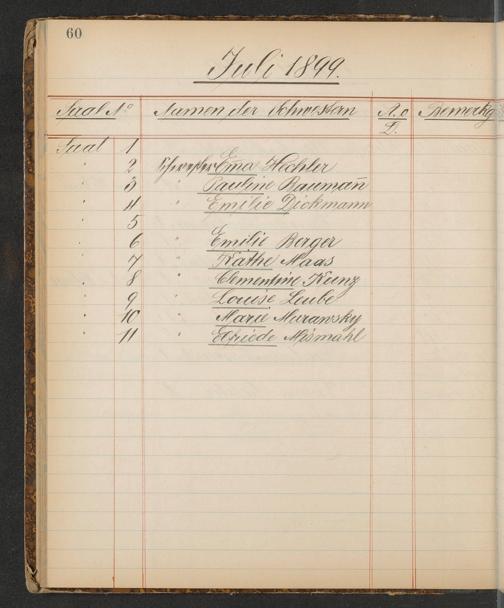 60
Juli 1899.
Saal No Namen der Schwestern A. o D. Bemerkg
Saal 1
" 2 Schwester Ema Hechler
" 3 " Pauline Baumañ
" 4 " Emilie Dickmann
" 5
" 6 " Emilie Berger
" 7 " Käthe Maas
" 8 " Clementine Kunz
" 9 " Louise Leube
" 10 " Marie Murawsky
" 11 " Elfriede Mismahl